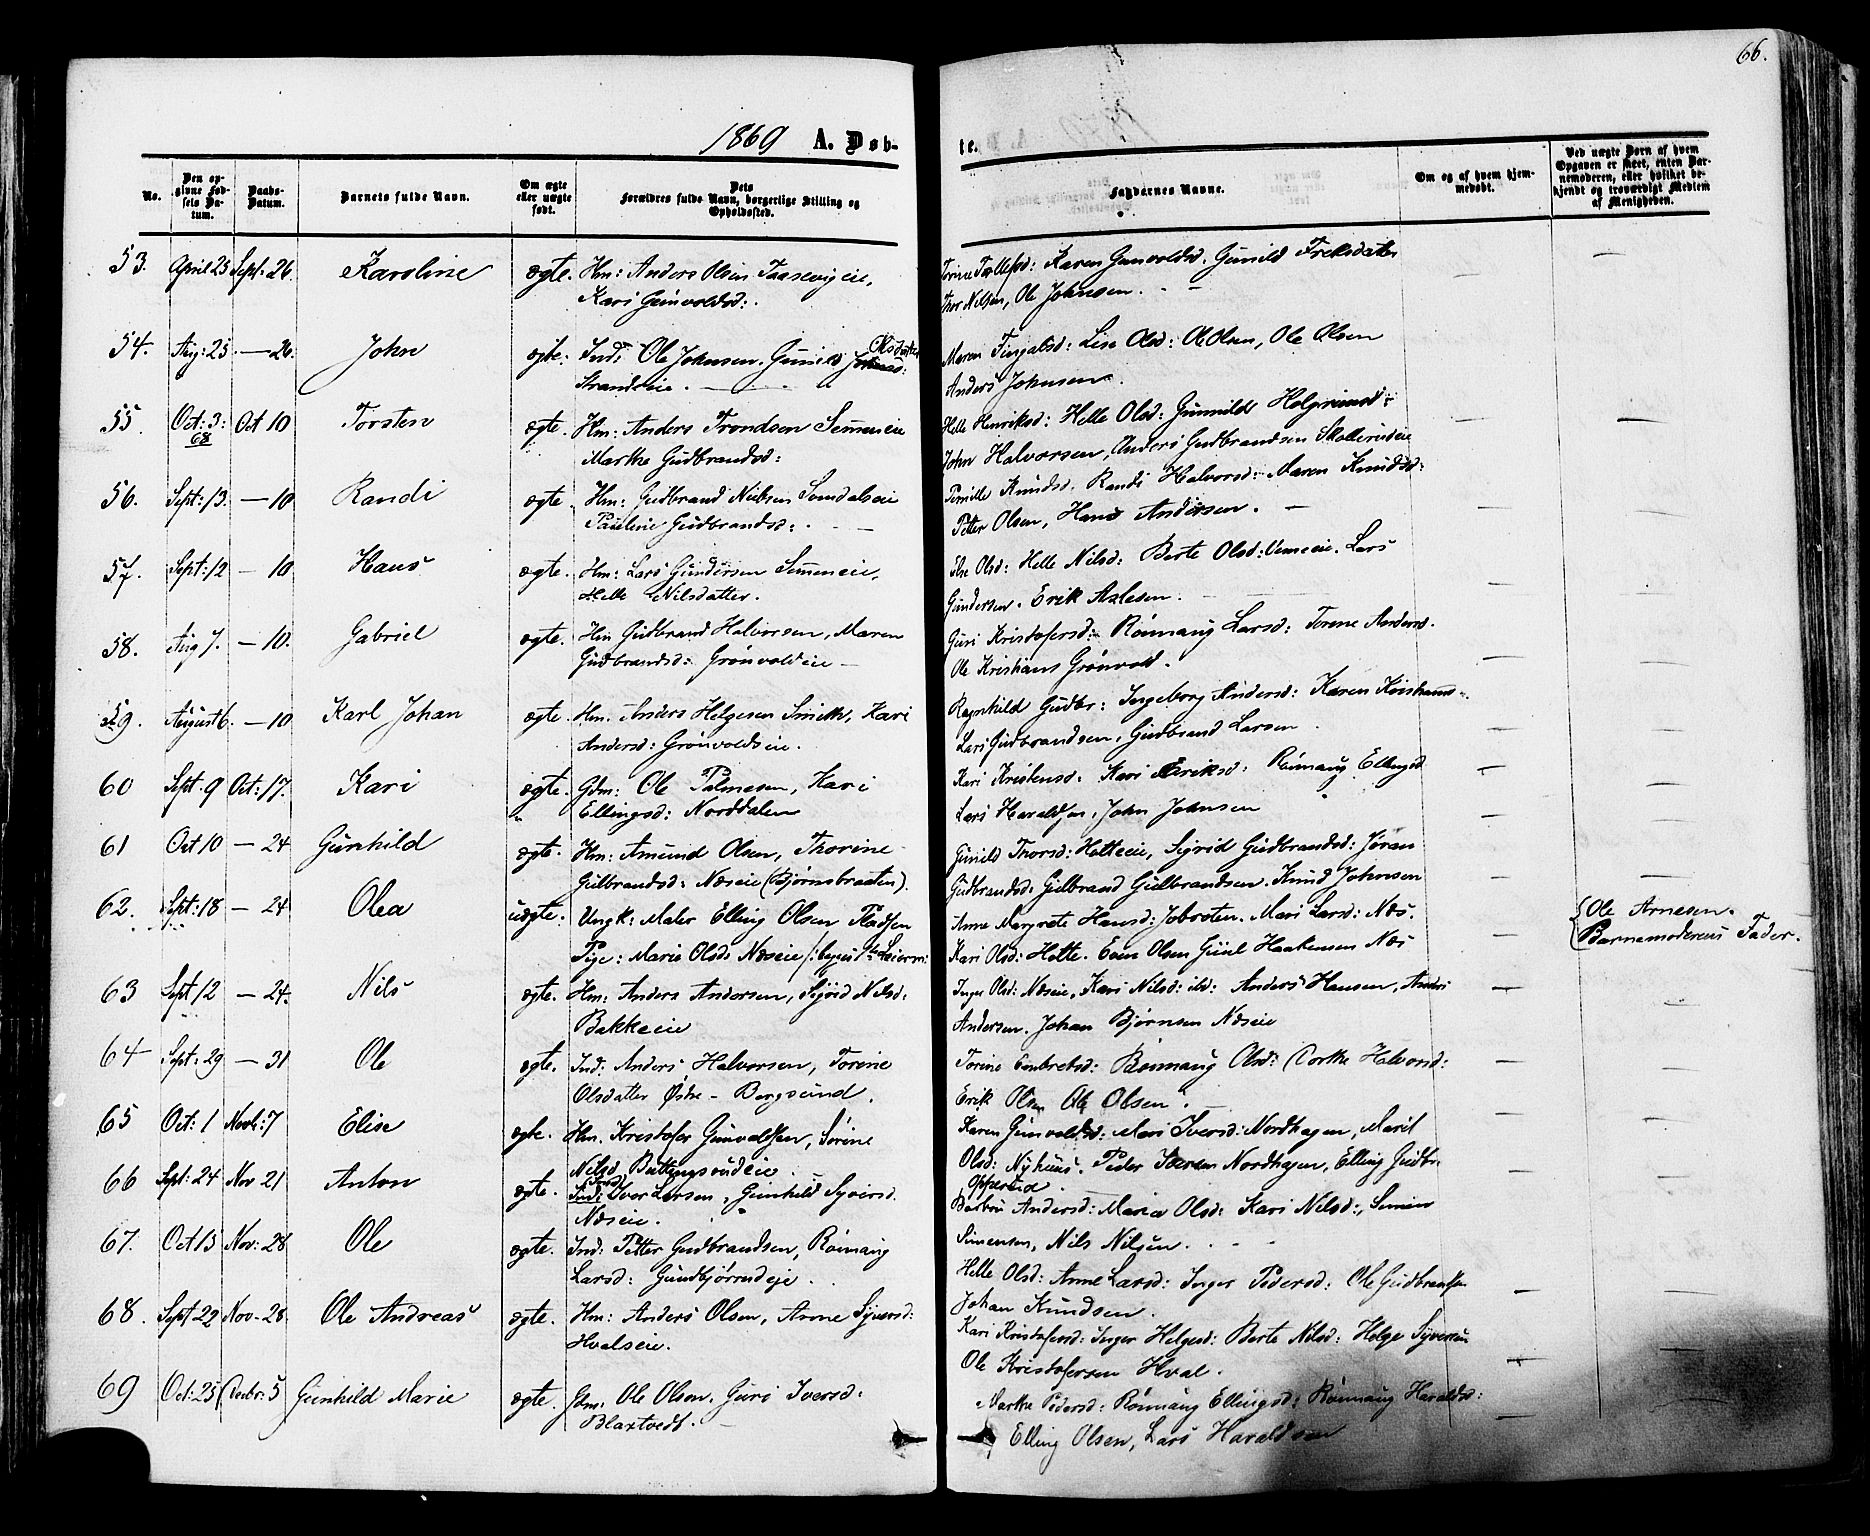 66.
1869 A. Døb-
te.
No.
Den opgivne Fødsels Datum.
Daabs-Datum.
Barnets fulde Navn.
Om ægte eller uægte født.
Dets Forældres fulde Navn, borgerlige Stilling og Opholdssted.
Faddernes Navne.
Om og af hvem hjemmedøbt.
Ved uægte Børn af hvem Opgaven er skeet, enten Barnemoderen, eller hvilket bekjendt og troværdigt Medlem af Menigheden.
53. April 25 Sept. 26. Karoline ægte. Hm: Anders Olsen
Kari Gunvoldsd:.
Karen Gunvoldsd. Gunild
Thor Nilsen, Ole Johnsen. - -
54. Aug: 25. — 26. John ægte. Ind: Ole Johnsen. Gunild Olsdatter
Strandeie. —
Maren Lise Olsd: Ole Olsen, Ole Olsen
Anders Johnsen.
55. Oct: 3: 68 Oct 10 Torsten ægte. Hm: Anders Trondsen Semmeneie
Marthe Gudbrandsd:
Helle Henriksd: Helle Olsd: Gunnild Holgrimsd:
John Halvorsen, Anders Gudbrandsen
56. Sept: 13. — 10 Randi ægte. Hm: Gudbrand Nielsen
Pauline Gudbrandsd: . —
Pernille Knudsd. Randi Halvorsd: Maren Knudsd:
Petter Olsen, Hans Andersen. —
57. Sept: 12 — 10 Hans ægte. Hm: Lars Gundersen Semmeneie,
Helle Nilsdatter.
Else Olsd: Helle Nilsd: Berte Olsd: Lars
Gundersen. Erik Axlesen.
58. Aug 7. — 10. Gabriel ægte. Hm Gudbrand Halvorsen, Maren
Gudbrandsd: Grönvoldeie —
Guri Kristofersd: Rönnaug Larsd: Torene Andersd.
Ole Kristians Grönvold.
59. August 6. — 10 Karl Johan ægte. Hm. Anders Helgesen Smith, Kari
Andersd: Grönvoldseie.
Ragnhild Gudbr: Ingeborg Andersd: Karen Kristians
Lars Gudbrandsen, Gudbrand Larsen.
60 Sept. 9 Oct: 17. Kari ægte. Gdm: Ole Palmesen, Kari
Ellingsd: Norddalen
Kari Kristensd: Kari Eriksd: Rönnaug Ellingsd
Lars Haraldsen, John Johnsen
61 Oct 10 — 24 Gunhild ægte. Hm: Amund Olsen, Thorine
Gulbrandsd: Næseie (Bjørnebraaten).
Gunild Thorsd: Hotteeie, Sigrid Gudbrandsd: Jöran
Gudbrandsd: Gulbrand Gulbrandsen. Knud Johnsen
62. Sept: 18 — 24 Olea uægte. Ungk: Maler Elling Olsen
Pige: Marie Olsd: Næseie
Anne Margrete Hansd: Mari Larsd: Næs.
Kari Olsd: Hotte. Even Olsen Haakensen Næs
Ole Arnesen.
Barnemoderens Fader.
63 Sept 12 — 24. Nils ægte. Hm: Anders Andersen, Sigrid Nilsd:
Bakkeeie
Inger Olsd: Næseie, Kari Nilsd: ibd: Anders Hansen, Anders
Andersen. Johan Bjørnsen Næseie
64 Sept: 29 — 31 Ole ægte. Ind: Anders Halvorsen, Torine
Olsdatter Østre - Bergsund.
Torine Embretsd: Rönnaug Olsd: Dorthe Halvorsd:
Erik Olsen Ole Olsen.
65 Oct: 1 Novb: 7 Elise ægte. Hm. Kristofer Gunvaldsen, Sörine
Nilsd
Karen Gunvoldsd: Mari Iversd: Nordhagen, Marit
Olsd: Nyhuus. Peder Iversen Nordhagen, Elling Gudbr.
66 Sept: 24 Nov 21 Anton ægte. Ind: Iver Larsen, Gunhild Syversd.
Næseie.
Barbro Andersd: Maria Olsd: Kari Nilsd:, Simen
Simensen, Nils Nilsen. . - -
67. Oct 15 Nov: 28 Ole ægte. Ind: Petter Gudbrandsen, Rönnaug
Larsd: Gundbjørrudeje.
Helle Olsd: Anne Larsd: Inger Pedersd: Ole Gudbrandsen
Johan Knudsen.
68. Sept 22 Nov. 28. Ole Andreas ægte. Hm: Anders Olsen, Anne Syversd:
Hvalseie.
Kari Kristofersd: Inger Helgesd: Berte Nilsd: Helge Syversen
Ole Kristofersen Hval.
69 Oct: 25 Decbr: 5 Gunhild Marie ægte. Gdm: Ole Olsen. Guri Iversd:
Blaxtvedt. —
Marthe Pedersd: Rönnaug Ellingsd: Rönnaug Haraldsd:
Elling Olsen, Lars Haraldsen